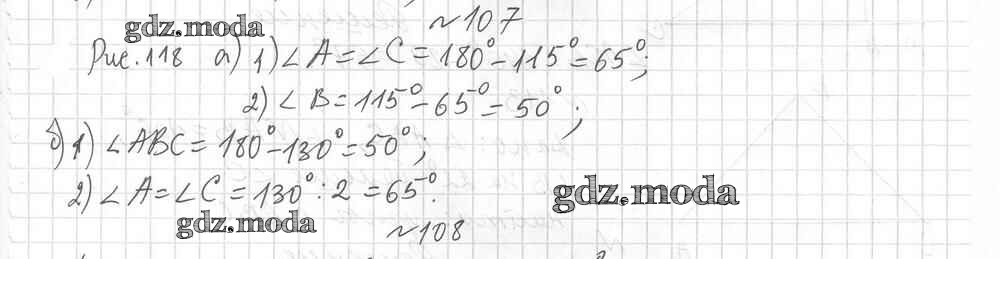 №107
gdz.moda
Рис. 118 а) 1) ∠A = ∠C = 180° - 115° = 65°;
2) ∠B = 115° - 65° = 50°;
б) 1) ∠ABC = 180° - 130° = 50°;
2) ∠A = ∠C = 130° : 2 = 65°.
gdz.moda
gdz.moda
№108